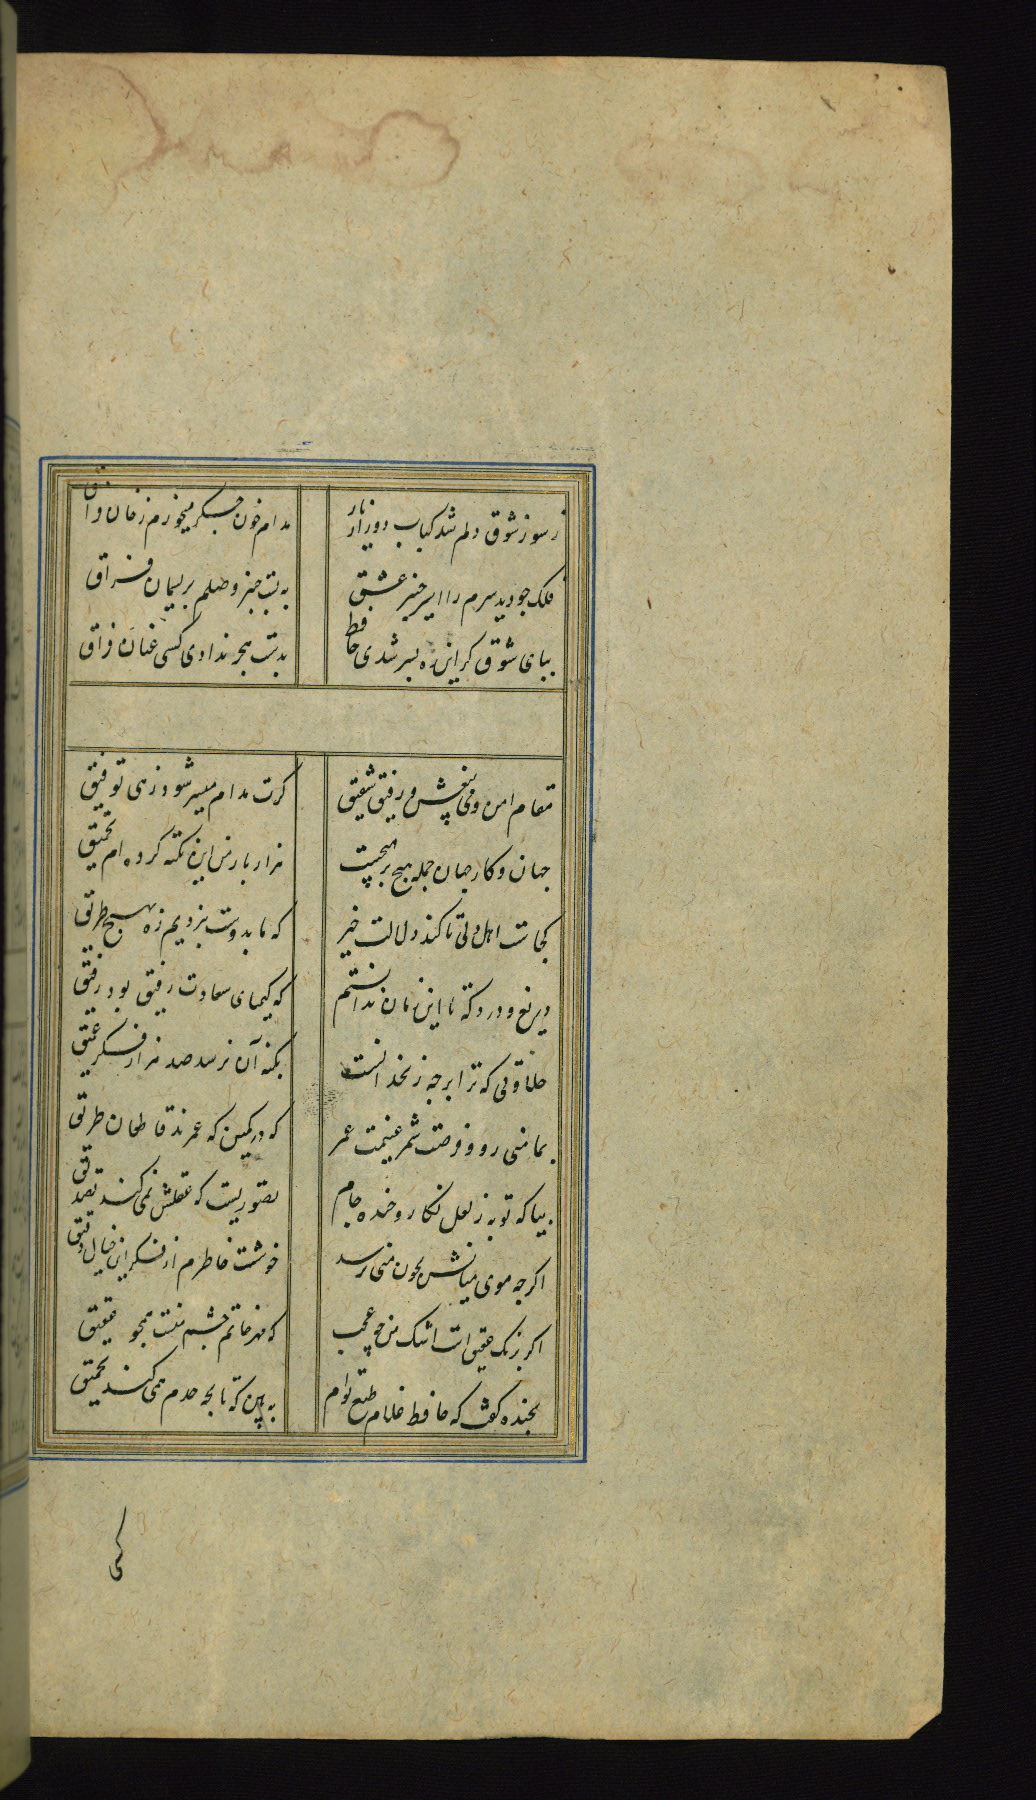 ز سوز شوق دلم شد کباب دور از یار
مدام خون جگر میخورم ز خان فراق
فلک چو دید سرم را اسیر چنبر عشق
ببست چنبر وصلم بریسمان فراق
بپای شوق کر این ره بسر شدی حافظ
بدست هجر ندادی کسی عنان فراق
مقام امن و می بیغش و رفیق شفیق
کرت مدام میسر شود زهی توفیق
جهان و کار جهان جمله هیچ بر هیچست
هزار بار من این نکته کرده ام تحقیق
کجاست اهل دلی تا کند دلالت خیر
که ما بدوست نبردیم ره بهیچ طریق
دریغ و درد که تا این زمان ندانستم
که کیمیای سعادت رفیق بود رفیق
حلاوتی که ترا بر چه زنخدانست
بکنه آن نرسد صد هزار فکر عمیق
بمامنی رو و فرصت شمر غنیمت عمر
که در کمین که عمرند قاطعان طریق
بیا که توبه ز لعل نکار و خنده جام
تصوریست که عقلش نمی کند تصدیق
اکرچه موی میانش بچون منی نرسد
خوشست خاطرم از فکر این خیال دقیق
اکر برنک عقیق است اشک من چه عجب
که مهر خاتم چشم منست همچو عقیق
بخنده کفت که حافظ غلام طبع توام
به بین که تا بچه حدم همی کند تحمیق